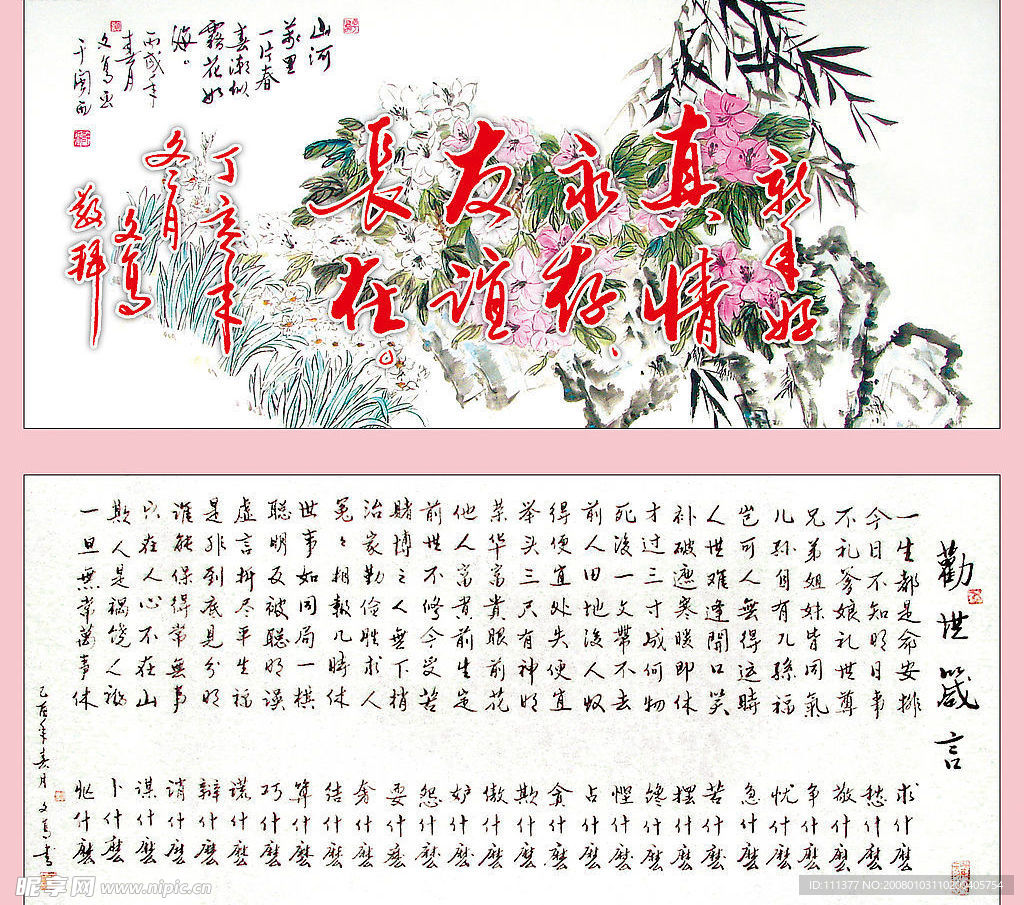 山河
萬里
一片春
春潮似
霧花如
海。
丙戌年
春月
于閩西
新年好
真情
永存、
友谊
長在。
丁亥年
冬月
敬拜
勸世箴言
一生都是命安排 求什麽
今日不知明日事 愁什麽
不礼爹娘礼世尊 敬什麽
兄弟姐妹皆同氣 争什麽
儿孙自有儿孫福 忧什麽
岂可人無得运時 急什麽
人世难逢開口笑 苦什麽
补破遮寒暖即休 摆什麽
才过三寸成何物 馋什麽
死後一文帶不去 悭什麽
前人田地後人收 占什麽
得便宜处失便宜 贪什麽
举头三尺有神明 欺什麽
荣华富貴眼前花 傲什麽
他人富貴前生定 妒什麽
前世不修今受苦 怨什麽
賭博之人無下梢 耍什麽
治家勤俭胜求人 奢什麽
冤冤相報几時休 结什麽
世事如同局一棋 算什麽
聪明反被聪明误 巧什麽
虚言折尽平生福 谎什麽
是非到底見分明 辩什麽
谁能保得常無事 诮什麽
穴在人心不在山 谋什麽
欺人是禍饶人福 卜什麽
一旦無常萬事休 忙什麽
乙酉年春月
昵享网 www.nipic.cn
ID:111377 NO:20080103110200405754